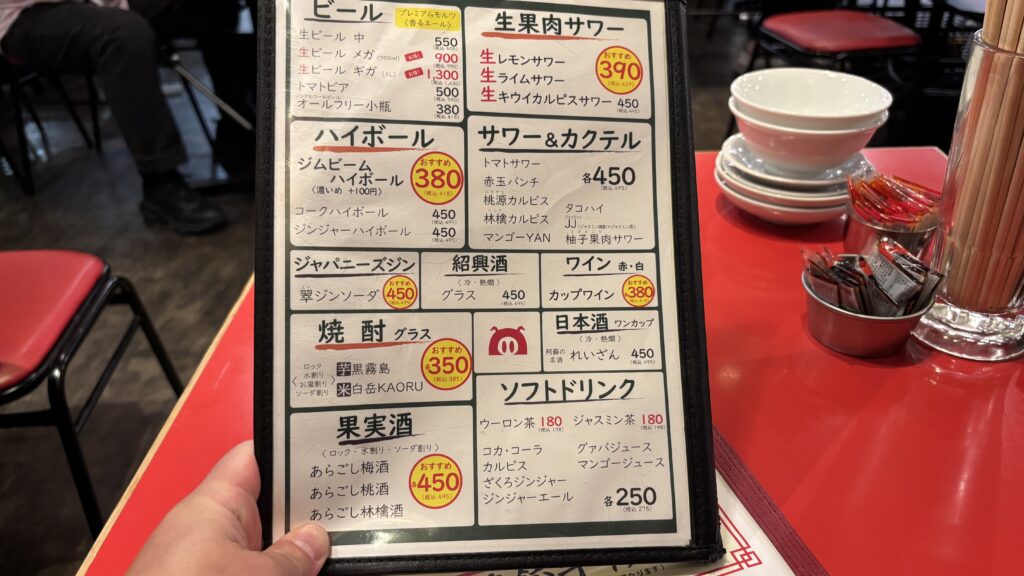 ビール
プレミアムモルツ
〈香るエール〉
生ビール 中 550
生ビール メガ (700ml) お得! 900
生ビール ギガ (1L) お得! 1,300
トマトビア 500
(税込 550)
ノンアルコールビール
オールフリー小瓶 380
(税込 418)
生果肉サワー
生レモンサワー
生ライムサワー
おすすめ
390
(税込 429)
生キウイカルピスサワー 450
(税込 495)
ハイボール
ジムビーム
ハイボール
〈濃いめ +100円〉
おすすめ
380
(税込 418)
コークハイボール 450
(税込 495)
ジンジャーハイボール 450
(税込 495)
サワー&カクテル
トマトサワー
赤玉パンチ
桃源カルピス
林檎カルピス
マンゴーYAN
各450
(税込 495)
タコハイ
JJ(ジャスミン焼酎×ジャスミン茶)
柚子果肉サワー
ジャパニーズジン
翠ジンソーダ
おすすめ
450
(税込 495)
紹興酒
〈冷・熱燗〉
グラス 450
(税込 495)
ワイン 赤・白
カップワイン
おすすめ
380
焼酎 グラス
ロック
水割り
お湯割り
ソーダ割り
芋黒霧島
米白岳KAORU
おすすめ
各350
(税込 385)
日本酒 ワンカップ
〈冷・熱燗〉
阿蘇の
名酒
れいざん 450
(税込 495)
果実酒
〈ロック・水割り・ソーダ割り〉
あらごし梅酒
あらごし桃酒
あらごし林檎酒
おすすめ
各450
(税込 495)
ソフトドリンク
ウーロン茶 180
(税込 198)
ジャスミン茶 180
(税込 198)
コカ・コーラ
カルピス
ざくろジンジャー
ジンジャーエール
グァバジュース
マンゴージュース
各250
(税込 275)